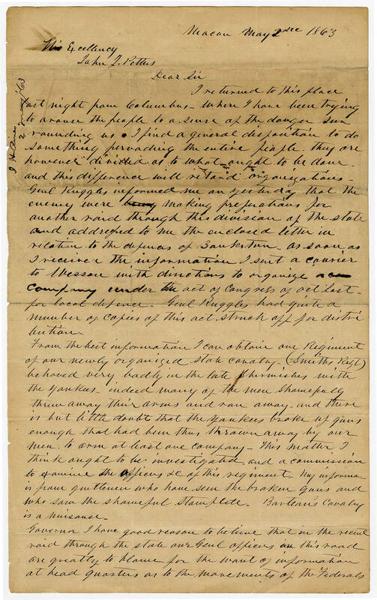 Macon May 2nd 1863
His Excellency
John J. Pettus
Dear Sir
I returned to this place
last night from Columbus - Where I have been trying
to arouse the people to a sense of the danger sur
rounding us. I find a general disposition to do
something pervading the entire people they are
however divided as to what ought to be done
and this difference will retard organizations -
Genl Ruggles informed me on yesterday that the
enemy were making preperations for
another raid through this division of the state
and addressed to me the enclosed letter in
relation to the defences of Bankston. as soon as
I receive the information I sent a courier
to Wesson with directions to organize a
company under the act of Congress of act last
for local defence. Genl Ruggles had quite a
number of copies of this act struck off for distri
bution.
From the best information I can obtain one Regiment
of our newly organized State cavalry (Smiths Regt)
behaved very badly in the late skirmishes with
the Yankees. indeed many of the men shamefully
threw away their arms and ran away. and there
is but little doubt that the Yankees broke up guns
enough that had been thus thrown away by our
men to arm at least one company - This matter I
think ought to be investigated and a commission
to examine the officers &c of this regiment My informa
is from gentlemen who have seen the broken guns and
who saw the shameful stampede. Barteau's Cavalry
is a nuisance.
Governor I have good reason to believe that in the recent
raid through the state our Genl officers on this road
are greatly to blame for the want of information
at head quarters as to the movements of the Federals